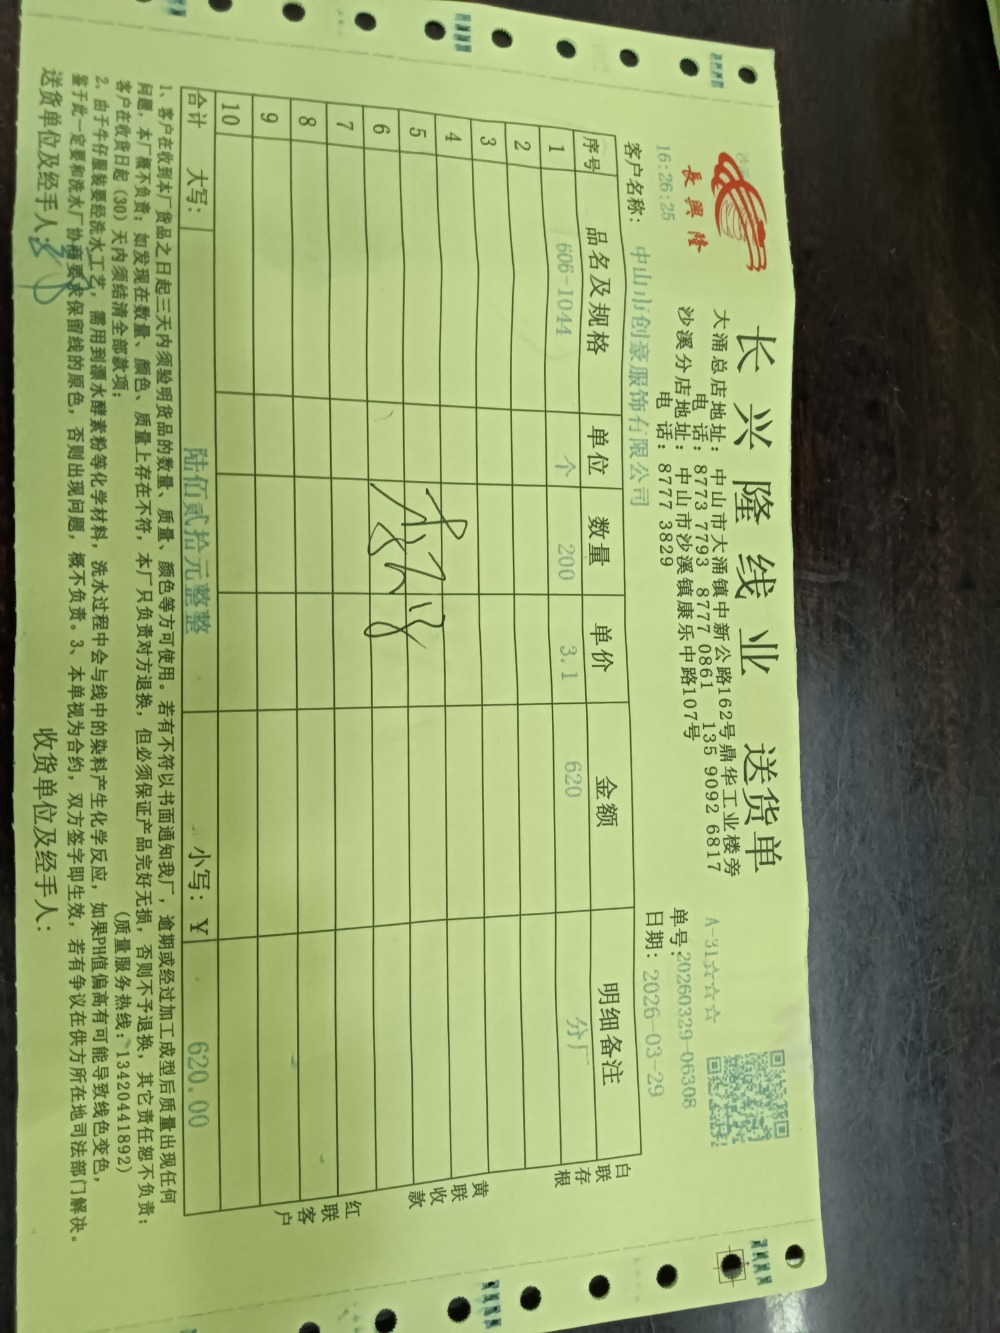 长兴隆线业 送货单
長興隆
大涌总店地址：中山市大涌镇中新公路162号鼎华工业楼旁
电 话：8773 7793 8777 0861 135 9092 6817
沙溪分店地址：中山市沙溪镇康乐中路107号
电 话：8777 3829
A-31☆☆☆
单号：20260329-06308
16:26:25
日期：2026-03-29
客户名称：中山市创豪服饰有限公司
序号 品名及规格 单位 数量 单价 金额 明细备注
1 606-1044 个 200 3.1 620 分厂
2
3
4
5
6
7
8
9
10
合计 大写：陆佰贰拾元整整 小写：￥ 620.00
白联存根
黄联收款
红联客户
1、客户在收到本厂货品之日起三天内须验明货品的数量、质量、颜色等方可使用。若有不符以书面通知我厂，逾期或经过加工成型后质量出现任何
问题，本厂概不负责；如发现在数量、颜色、质量上存在不符，本厂只负责对方退换，但必须保证产品完好无损，否则不予退换，其它责任恕不负责；
客户在收货日起（30）天内须结清全部款项； (质量服务热线：13420441892)
2、由于牛仔服装要经洗水工艺，需用到漂水酵素粉等化学材料，洗水过程中会与线中的染料产生化学反应，如果PH值偏高有可能导致线色变色，
鉴于此一定要和洗水厂协商要求保留线的原色，否则出现问题，概不负责。3、本单视为合约，双方签字即生效，若有争议在供方所在地司法部门解决。
送货单位及经手人： 收货单位及经手人：